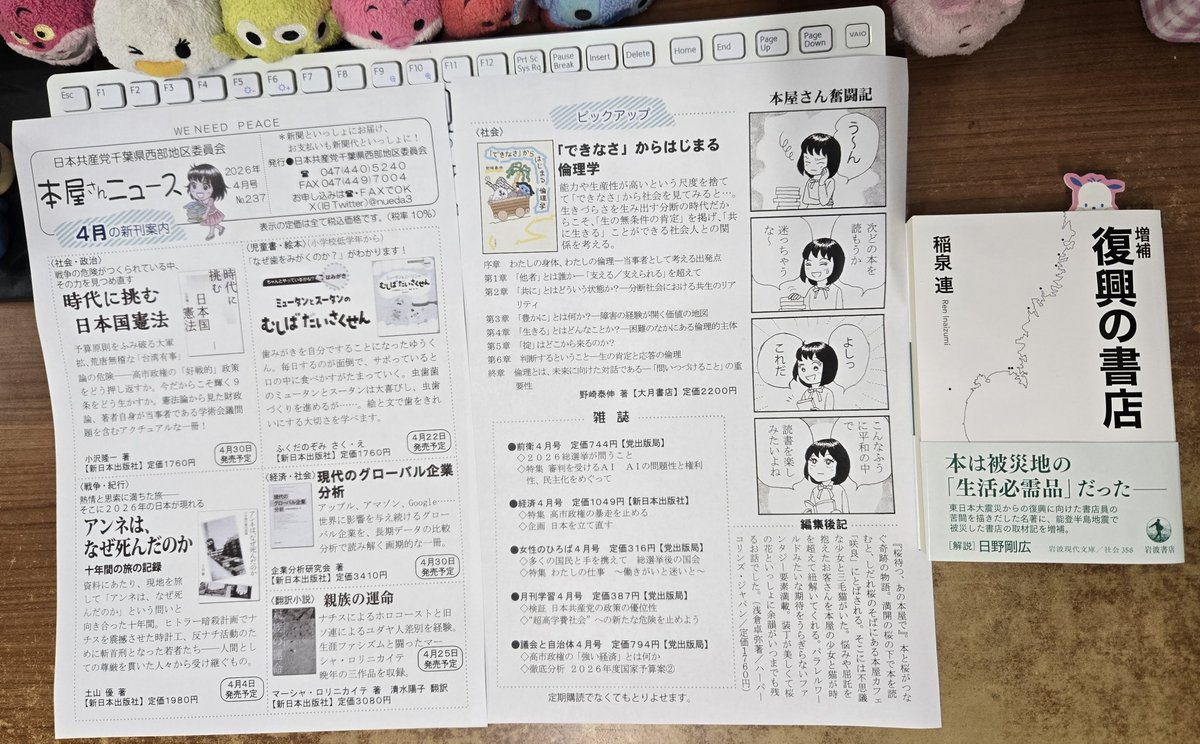 Esc
F1
F2
F3
F4
F5
F6
F7
F8
F9
F10
F11
F12
Prt Sc
Sys Rq
Pause
Break
Insert
Delete
Home
End
Page
Up
Page
Down
VAIO
WE NEED PEACE
日本共産党千葉県西部地区委員会
本屋さんニュース
2026年
4月号
№237
＊新聞といっしょにお届け、
お支払いも新聞代といっしょに！
発行●日本共産党千葉県西部地区委員会
☎ 047(440)5240
FAX 047(449)7004
お申し込みは☎・FAXでOK
X(旧Twitter)@nueda3
4月の新刊案内
表示の定価は全て税込価格です。（税率10％）
〈社会・政治〉
戦争の危険がつくられている中、
その力を見つめ直す
時代に挑む
日本国憲法
時代に
挑む
日本国
憲法
予算原則をふみ破る大軍
拡、荒唐無稽な「台湾有事」
論の危機――高市政権の「好戦的」政策
をどう押し返すか。今だからこそ輝く９
条をどう生かすか。憲法論から見た財政
論、著者自身が当事者である学術会議問
題を含むアクチュアルな一冊！
小沢隆一 著
【新日本出版社】定価1760円
4月30日
発売予定
〈児童書・絵本〉（小学校低学年から）
「なぜ歯をみがくのか？」がわかります！
ミュータンとスータンの
むしばだいさくせん
むしばだいさくせん
歯みがきを自分ですることになったゆうく
ん。毎日するのが面倒で、サボっていると
口の中に食べかすがたまっていく。虫歯菌
のミュータンとスータンは大喜びし、虫歯
づくりを進めるが……。絵と文で歯をきれ
いにする大切さを学べます。
ふくだのぞみ さく・え
【新日本出版社】定価1760円
4月22日
発売予定
〈戦争・紀行〉
熱情と思索に満ちた旅――
そこに2026年の日本が現れる
アンネは、
なぜ死んだのか
十年間の旅の記録
アンネは、
なぜ死んだのか
資料にあたり、現地を旅
して「アンネは、なぜ死
んだのか」という問いと
向き合った十年間。ヒトラー暗殺計画でナ
チスを震撼させた時計工、反ナチ活動のた
めに斬首刑となった若者たち――人間とし
ての尊厳を貫いた人々から受け継ぐもの。
土山 優 著
【新日本出版社】定価1980円
4月4日
発売予定
〈経済・社会〉
現代のグローバル企業
分析
現代の
グローバル企業
分析
アップル、アマゾン、Google……
世界に影響を与え続けるグロー
バル企業を、長期データの比較
分析で読み解く画期的な一冊。
企業分析研究会 著
【新日本出版社】定価3410円
4月30日
発売予定
〈翻訳小説〉
親族の運命
ナチスによるホロコーストと旧
ソ連によるユダヤ人差別を経験。
生涯ファシズムと闘ったマー
シャ・ロリニカイテ
晩年の三作品を収録。
4月25日
発売予定
マーシャ・ロリニカイテ 著 清水陽子 翻訳
【新日本出版社】定価3080円
ピックアップ
〈社会〉
「できなさ」からはじまる
倫理学
「できなさ」から
はじまる
倫理学
能力や生産性が高いという尺度を捨て
て「できなさ」から社会を見てみると…。
生きづらさを生み出す分断の時代だか
らこそ、「生の無条件の肯定」を掲げ、「共
に生きる」ことができる社会人との関
係を考える。
序章 わたしの身体、わたしの倫理―当事者として考える出発点
第1章 「他者」とは誰か―「支える／支えられる」を超えて
第2章 「共に」とはどういう状態か？―分断社会における共生のリア
リティ
第3章 「豊かに」とは何か？―障害の経験が開く価値の地図
第4章 「生きる」とはどんなことか？―困難のなかにある倫理的主体
第5章 「掟」はどこから来るのか？
第6章 判断するということ―生の肯定と応答の倫理
終章 倫理とは、未来に向けた対話である―「問いつづけること」の重
要性
野崎泰伸 著【大月書店】定価2200円
雑誌
●前衛４月号 定価744円【党出版局】
◇2026総選挙が問うこと
◇特集 審判を受けるAI AIの問題性と権利
性、民主化をめぐって
●経済４月号 定価1049円【新日本出版社】
◇特集 高市政権の暴走を止める
◇企画 日本を立て直す
●女性のひろば４月号 定価316円【党出版局】
◇多くの国民と手を携えて 総選挙後の国会
◇特集 わたしの仕事 ～働きがいと迷いと～
●月刊学習４月号 定価387円【党出版局】
◇検証 日本共産党の政策の優位性
◇“超高学費社会”への新たな危険を止めよう
●議会と自治体４月号 定価794円【党出版局】
◇高市政権の「強い経済」とは何か
◇徹底分析 2026年度国家予算案②
定期購読でなくてもとりよせます。
本屋さん奮闘記
う～ん
次どの本を
読もうか
迷っちゃう
な～
よしっ
これだ
こんなふう
に平和の中
で
読書を楽し
みたいよね
編集後記
『桜待つ、あの本屋で』。本と桜がつな
ぐ奇跡の物語。満開の桜の下で本を読
むと、しだれ桜のそばにある本屋カフェ
「咲良」にとばされる。そこには不思議
な少女と三毛猫がいた。悩みや屈託を
抱えたお客さんを本屋の少女と猫が時
を超えて紐解いてくれる。パラレルワー
ルドみたいな期待をうらぎらないファ
ンタジー要素満載。装丁が美しくて桜
の花といっしょに余韻がいつまでも残
るお話でした。（浅倉卓弥著／ハーパー
コリンズ・ジャパン／定価1760円）
増補
復興の書店
稲泉 連
Ren Inaizumi
本は被災地の
「生活必需品」だった――
東日本大震災からの復興に向けた書店員の
苦闘を描きだした名著に、能登半島地震で
被災した書店の取材記を増補。
［解説］日野剛広
岩波現代文庫／社会 358
岩波書店